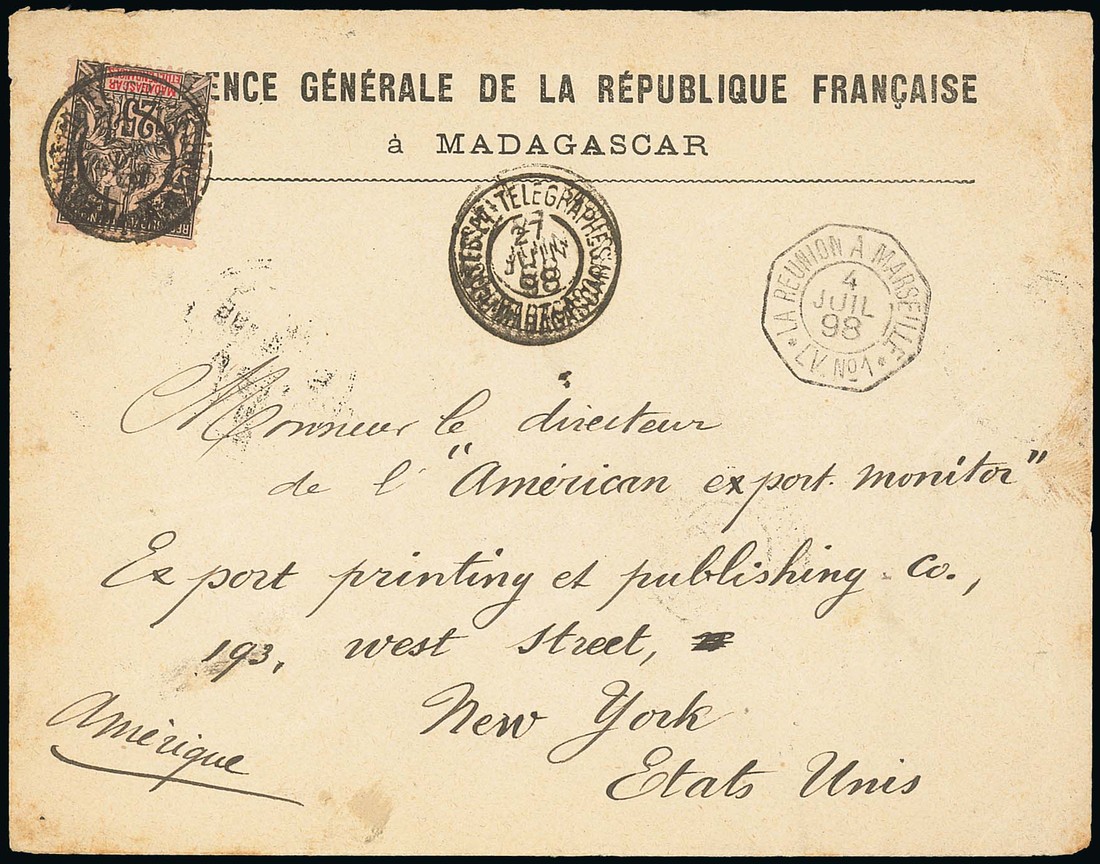 ENCE GÉNÉRALE DE LA RÉPUBLIQUE FRANÇAISE
à MADAGASCAR
MADAGASCAR
25
TELEGRAPHES
27
JUIN
98
MADAGASCAR
LA REUNION A MARSEILLE
4
JUIL
98
LV Nº1
Monsieur le directeur
de l' "Américan export monitor"
Export printing et publishing co.,
193, west Street,
New York
Etats Unis
Amérique